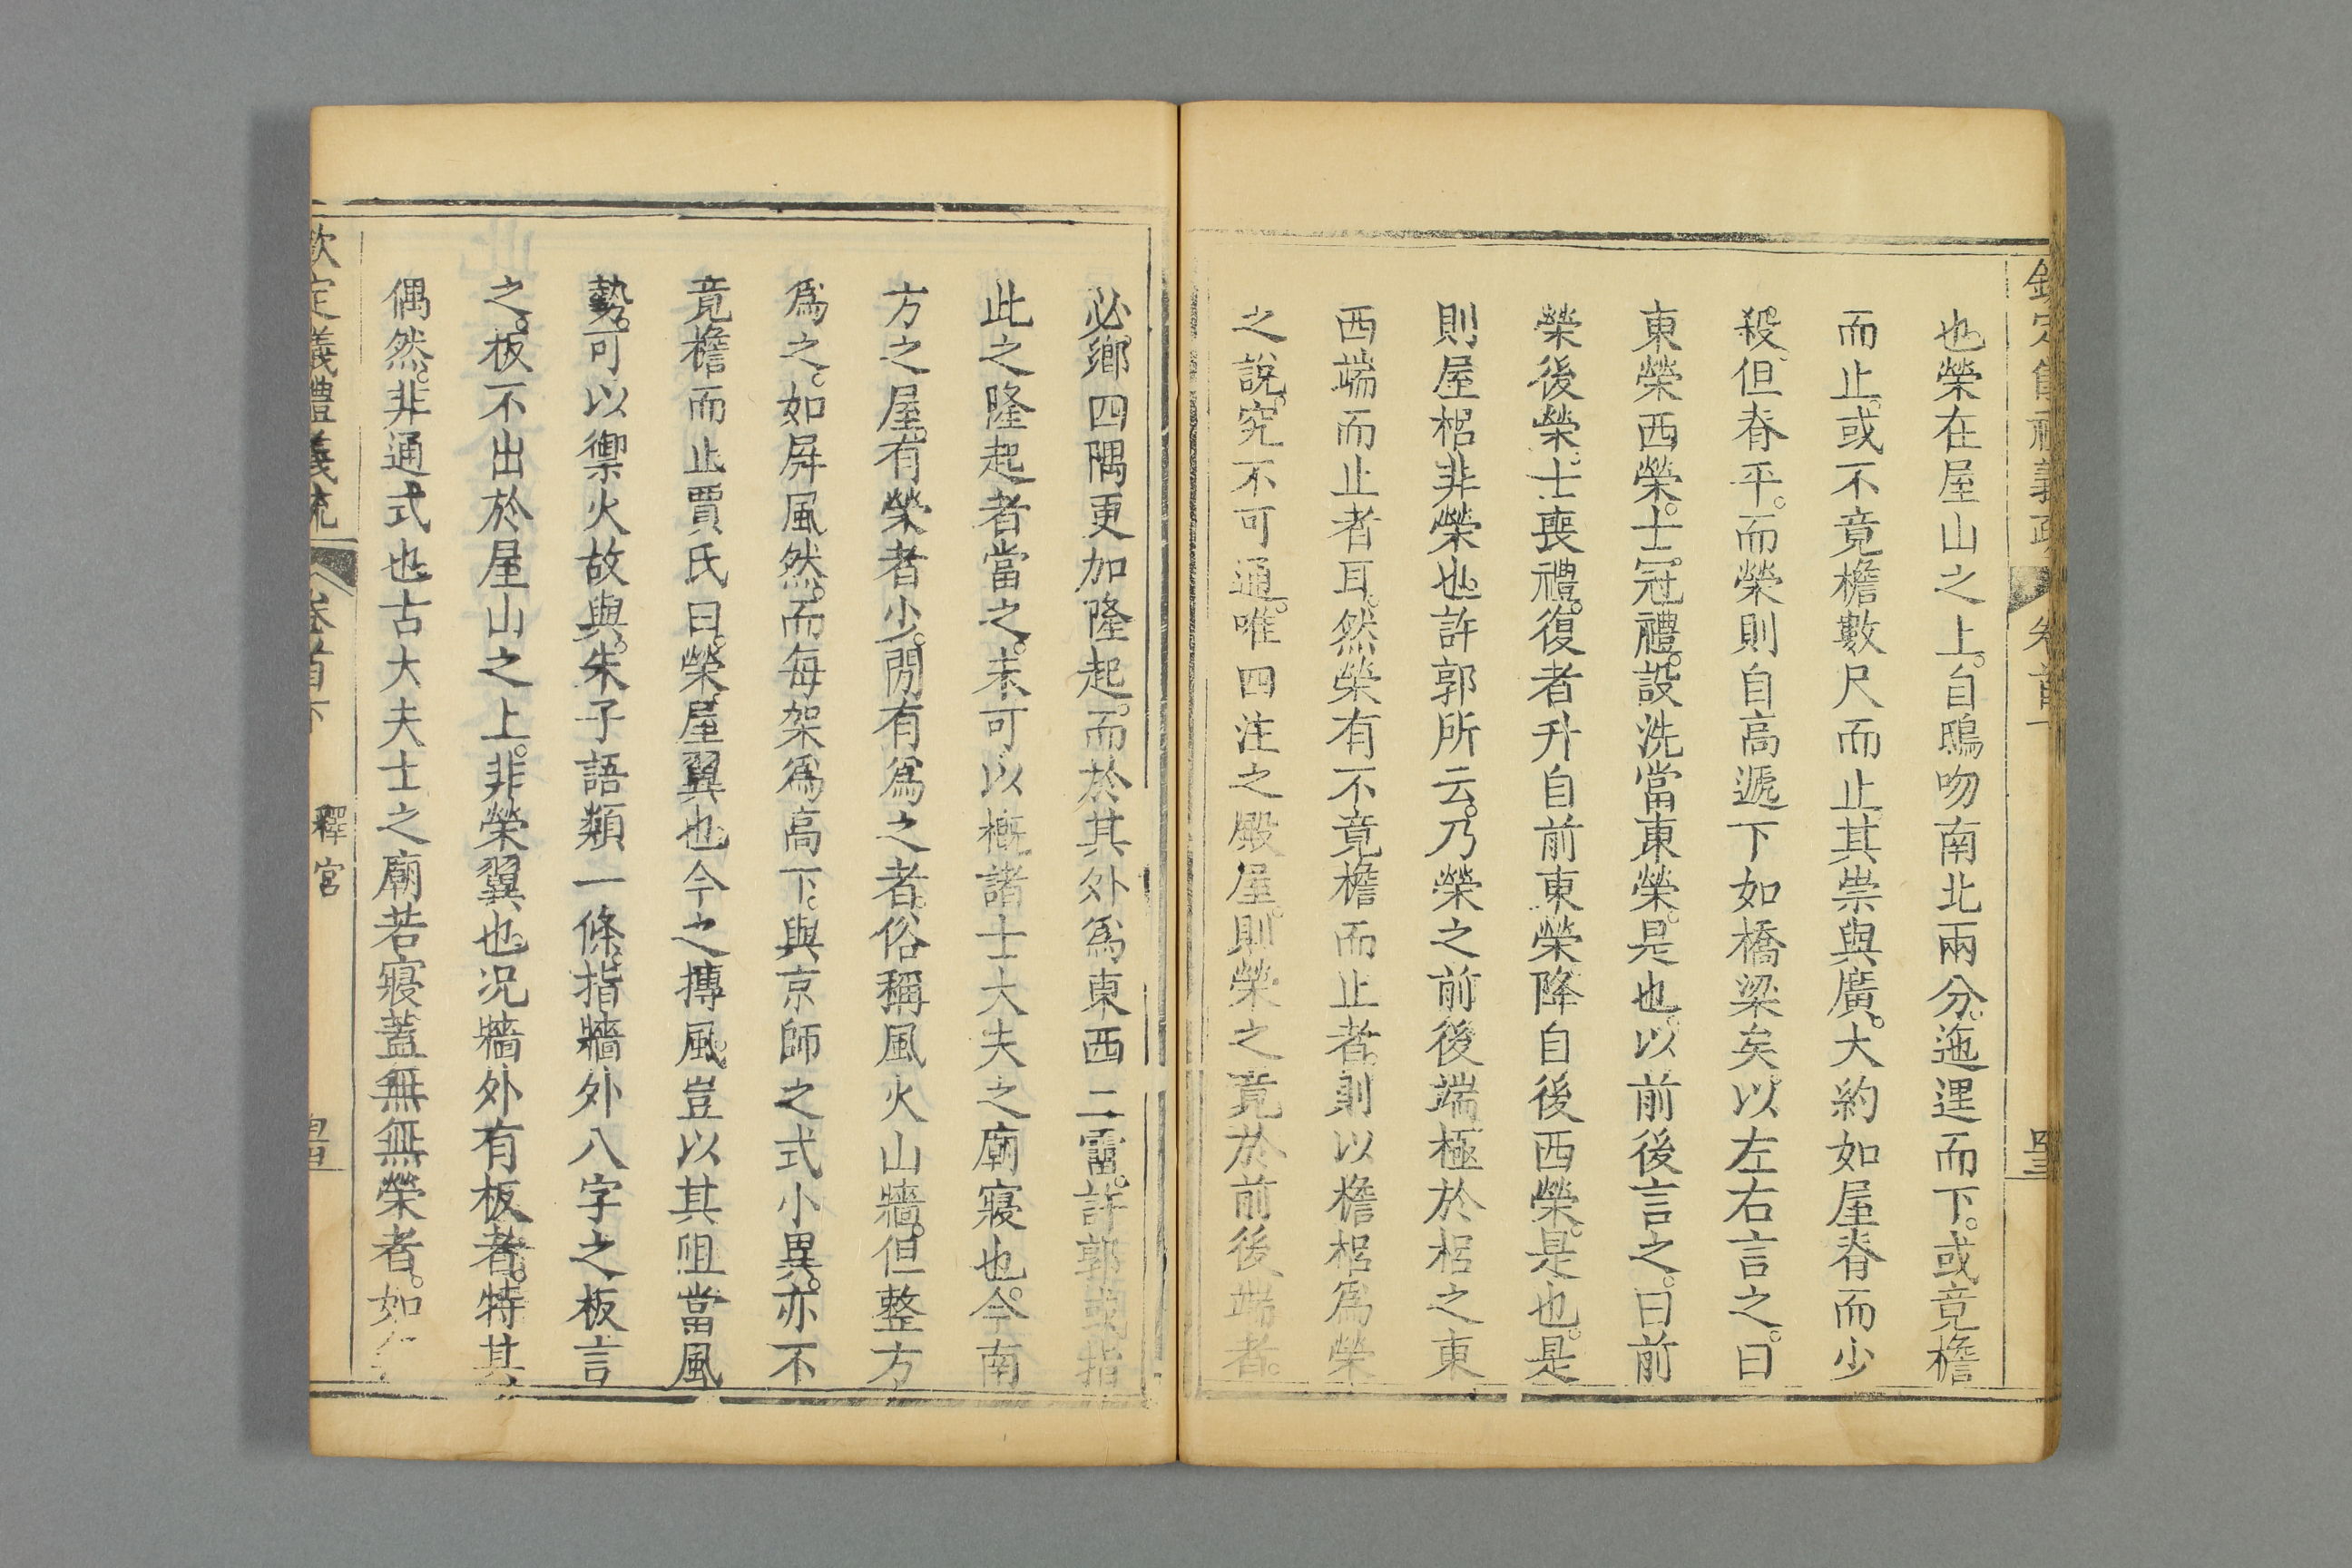 欽定儀禮義疏 卷首下
也。榮在屋山之上。自鴟吻南北兩分。迤邐而下。或竟檐
而止。或不竟檐數尺而止。其崇與廣。大約如屋脊而少
殺。但脊平。而榮則自高遞下如橋梁矣。以左右言之。曰
東榮西榮。士冠禮。設洗當東榮。是也。以前後言之。曰前
榮後榮。士喪禮。復者升自前東榮降自後西榮。是也。是
則屋梠非榮也。許郭所云。乃榮之前後端極於梠之東
西端而止者耳。然榮有不竟檐而止者。則以檐梠爲榮
之說。究不可通。唯四注之殿屋。則榮之竟於前後端者。
必鄉四隅更加隆起。而於其外爲東西二霤。許郭或指
此之隆起者當之。未可以概諸士大夫之廟寢也。今南
方之屋。有榮者少。閒有爲之者。俗稱風火山牆。但整方
爲之。如屏風然。而每架爲高下。與京師之式小異。亦不
竟檐而止賈氏曰。榮屋翼也。今之摶風。豈以其阻當風
勢。可以禦火故與。朱子語類一條。指牆外八字之板言
之。板不出於屋山之上。非榮翼也。况牆外有板者。特其
偶然。非通式也。古大夫士之廟若寢蓋無無榮者。如
欽定儀禮義疏 卷首下 釋宮